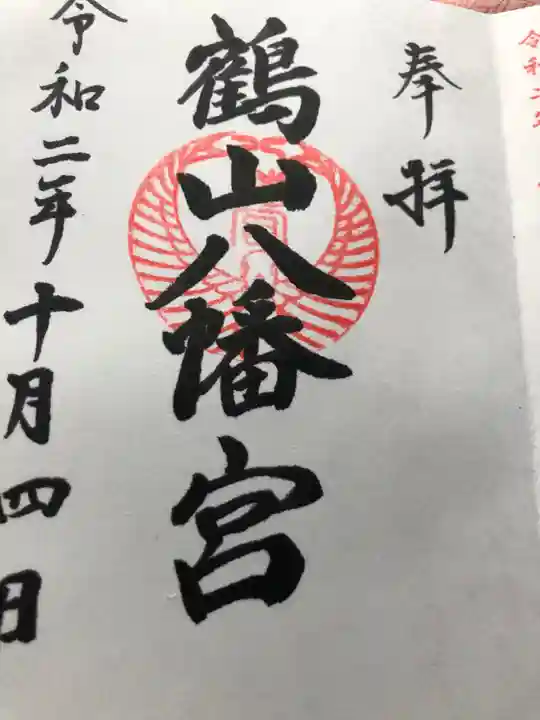 奉拝
鶴山八幡宮
令和二年十月四日